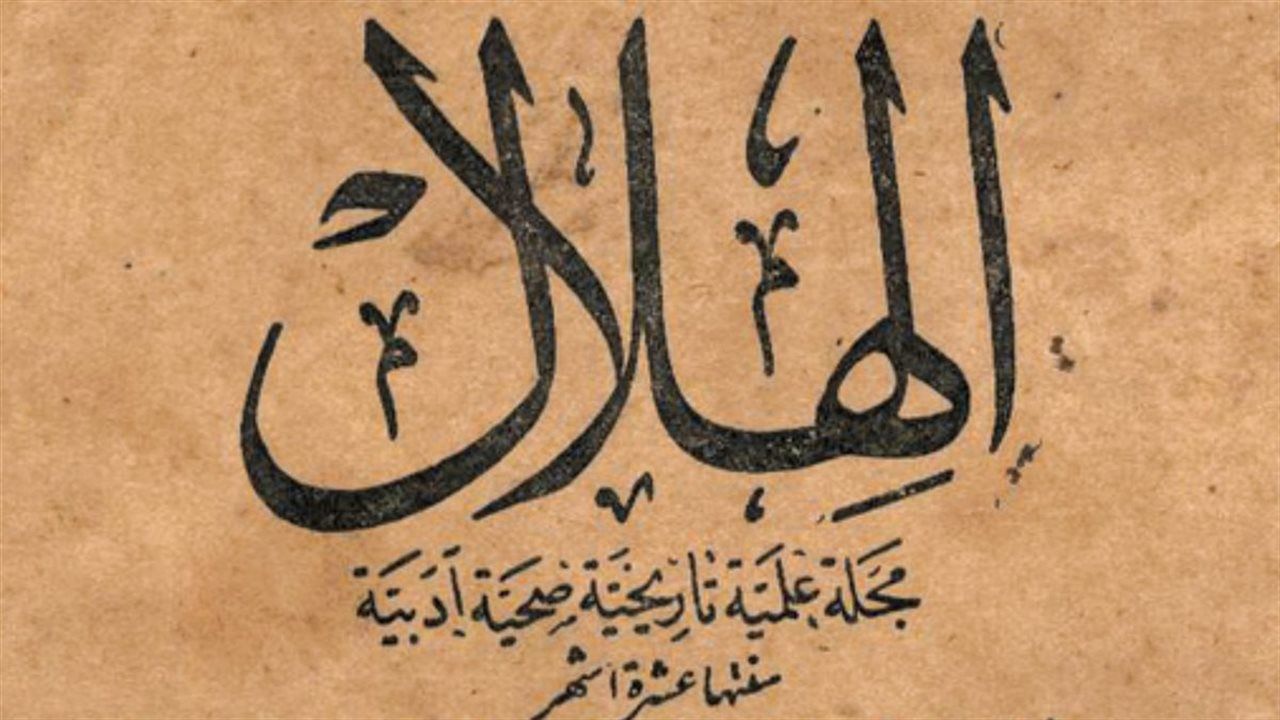 الهلال
مجلة علمية تاريخية صحية أدبية
سنتها عشرة اشهر